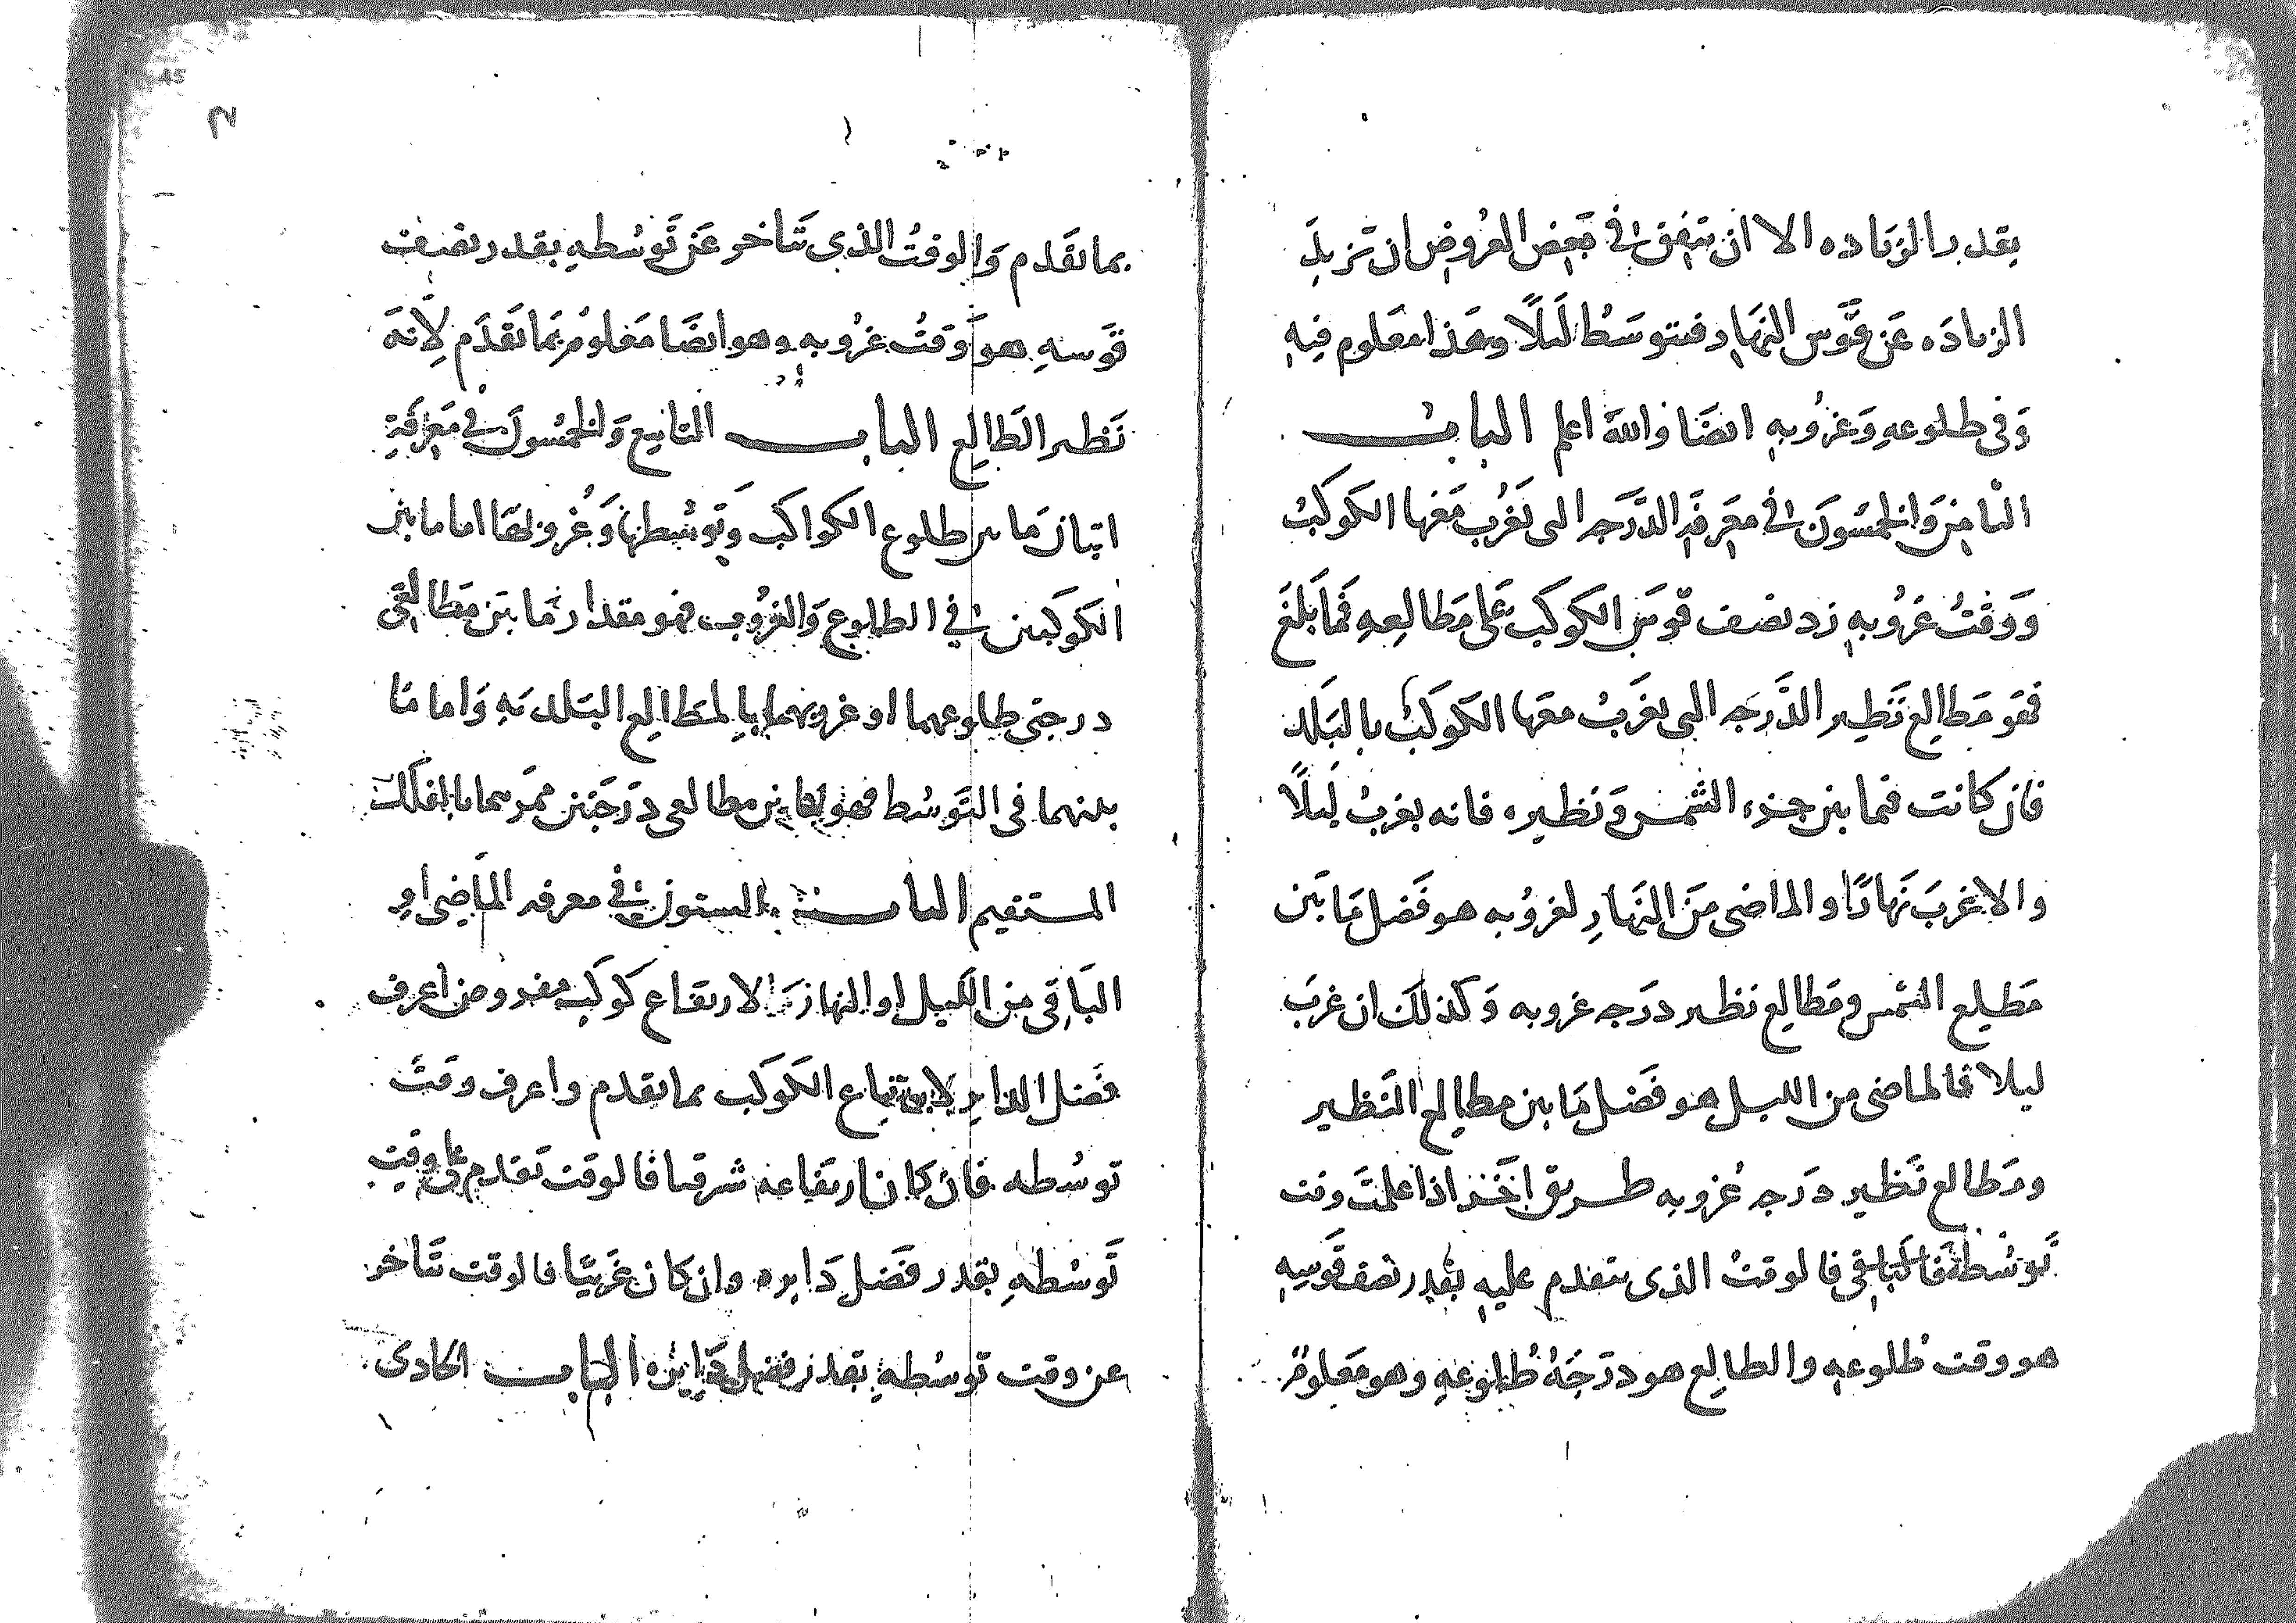 بقدر الزياده الا ان يتفق في بعض العروض ان تزيد
الزياده عن قوس النهار فيتوسط ليلًا وهذا معلوم فيه
وفي طلوعه وغروبه ايضا والله اعلم الباب
الثامن والخمسون في معرفه الدرجه التي تغرب معها الكوكب
ووقت غروبه زد نصف قوس الكوكب على مطالعه فما بلغ
فهو مطالع نظير الدرجه التي يغرب معها الكوكب بالبلد
فان كانت فيما بين جزء الشمس ونظيره فانه يغرب ليلًا
والا غرب نهارًا والماضي من النهار لغروبه هو فضل ما بين
مطلع الشمس ومطالع نظير درجه غروبه وكذلك ان غرب
ليلا فالماضي من الليل هو فضل ما بين مطالع النظير
ومطالع نظير درجه غروبه طريق اخر اذا علمت وقت
توسطه فالوقت الذي يتقدم عليه بقدر نصف قوسه
هو وقت طلوعه والطالع هو درجة طلوعه وهو معلوم
بما تقدم والوقت الذي تتاخر عن توسطه بقدر نصف
قوسه هو وقت غروبه وهو ايضا معلوم بما تقدم لانه
نظير الطالع الباب التاسع والخمسون في معرفة
ازمان ما بين طلوع الكواكب وتوسطها وغروبها اما ما بين
الكوكبين في الطلوع والغروب فهو مقدار ما بين مطالعي
درجتي طلوعهما او غروبهما بالمطالع البلديه واما ما
بينهما في التوسط فهو ما بين مطالعي درجتين ممرهما بالفلك
المستقيم الباب الستون في معرفه الماضي او
الباقي من الليل او النهار لارتفاع كوكب مفروض اعرف
فضل الداير لارتفاع الكوكب بما تقدم واعرف وقت
توسطه فان كان ارتفاعه شرقيا فالوقت تقدم على وقت
توسطه بقدر فضل دايره وان كان غربيًا فالوقت تتاخر
عن وقت توسطه بقدر فضل دايره الباب الحادي